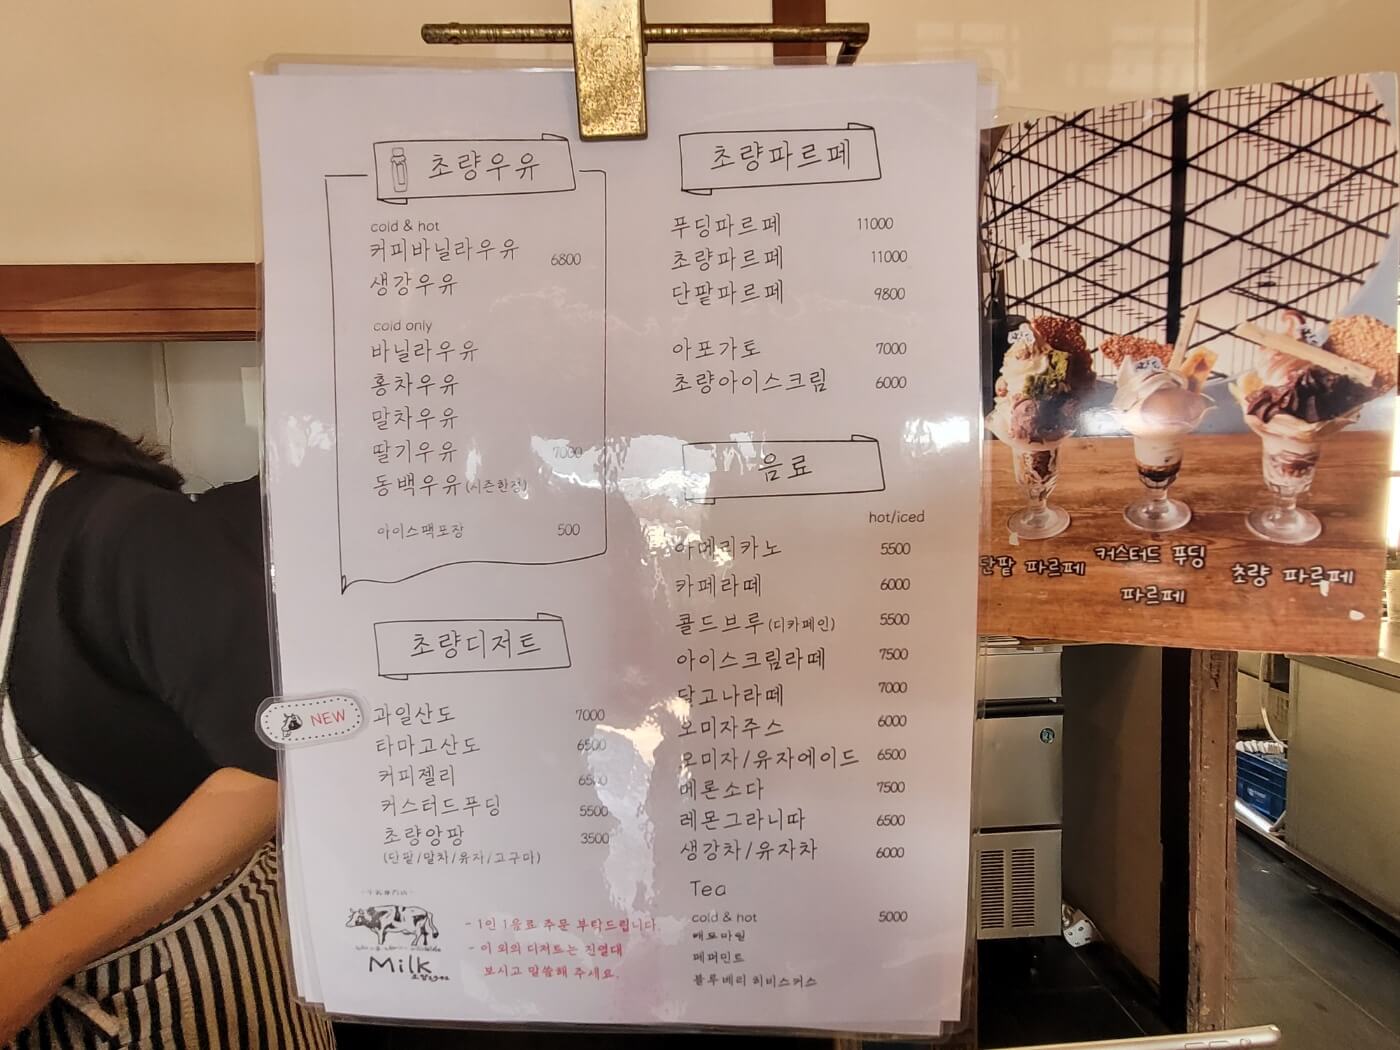 초량우유
cold & hot
커피바닐라우유
6800
생강우유
cold only
바닐라우유
홍차우유
말차우유
딸기우유 7000
동백우유(시즌한정)
아이스팩포장 500
초량디저트
NEW
과일산도 7000
타마고산도 6500
커피젤리
커스터드푸딩 5500
초량앙팡 3500
(단팥/말차/유자/고구마)
Milk
- 1인 1음료 주문 부탁드립니다.
- 이 외의 디저트는 진열대
보시고 말씀해 주세요.
초량파르페
푸딩파르페 11000
초량파르페 11000
단팥파르페 9800
아포가토 7000
초량아이스크림 6000
음료
hot/iced
아메리카노 5500
카페라떼 6000
콜드브루(디카페인) 5500
아이스크림라떼 7500
달고나라떼 7000
오미자주스 6000
오미자/유자에이드 6500
메론소다 7500
레몬그라니따 6500
생강차/유자차 6000
Tea
cold & hot 5000
캐모마일
페퍼민트
블루베리 히비스커스
단팥 파르페
커스터드 푸딩
파르페
초량 파르페